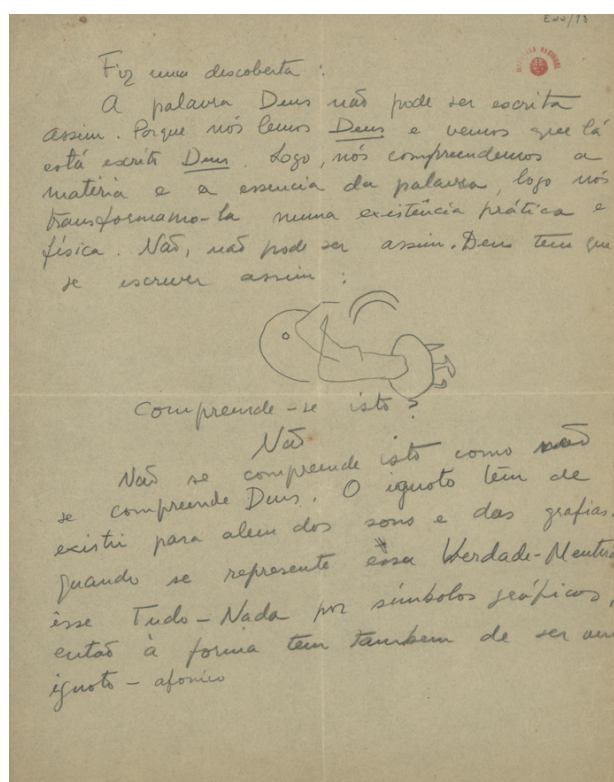 E22/78
Fiz uma descoberta:
A palavra Deus não pode ser escrita
assim. Porque nós lemos Deus e vemos que lá
está escrito Deus. Logo, nós compreendemos a
matéria e a essencia da palavra, logo nós
transformamo-la numa existência prática e
física. Não, não pode ser assim. Deus tem que
se escrever assim:
Compreende-se isto?
Não
Não se compreende isto como não
se compreende Deus. O ignoto têm de
existir para alem dos sons e das grafias.
Quando se represente essa Verdade-Mentira
êsse Tudo-Nada por símbolos gráficos,
então à forma tem tambem de ser um
ignoto-afonico